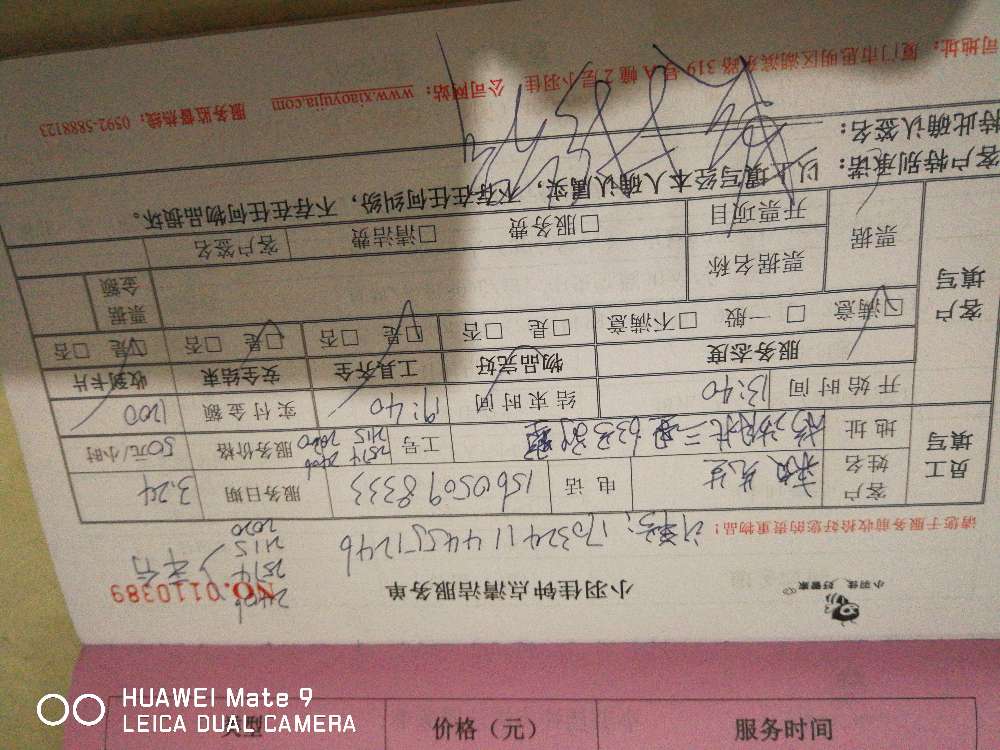 小羽佳 好管家
小羽佳钟点清洁服务单
NO.0110389
2514
2115
2020
请您于服务前收拾好您的贵重物品!
1703241144551246
员工填写
客户姓名
先生
电话
15605098333
服务日期
3.24
地址
工号
2514
2115
2020
服务价格
50元/小时
开始时间
13:40
结束时间
19:40
实付金额
1200
客户填写
服务态度
物品完好
工具齐全
安全结束
收到卡片
□满意 □一般 □不满意
□是 □否
□是 □否
□是 □否
□是 □否
票据
票据名称
票据金额
开票项目
□服务费 □清洁费
客户签名
客户特别承诺: 以上填写经本人确认属实,不存在任何纠纷,不存在任何物品损坏。
特此确认签名:
司地址: 厦门市思明区湖滨东路 319 号 A 幢 2 层小羽佳 公司网站: www.xiaoyujia.com 服务监督热线: 0592-5888123
类型 价格(元) 服务时间
HUAWEI Mate 9
LEICA DUAL CAMERA